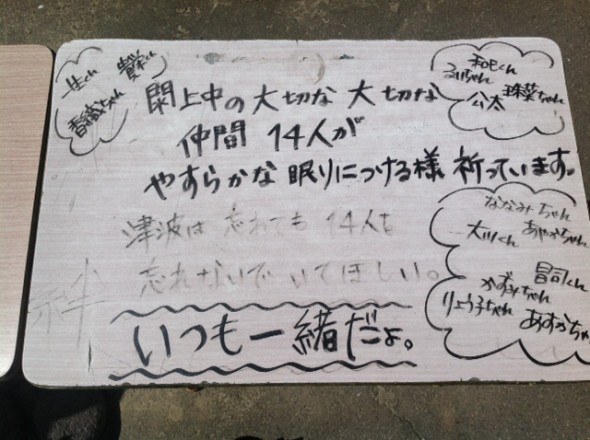 香織ちゃん
くん
公太
珠菜ちゃん
閖上中の大切な大切な
仲間14人が
やすらかな眠りにつける様祈っています。
津波は忘れても14人を
忘れないでいてほしい。
いつも一緒だよ。
ななみちゃん
あやかちゃん
昌司くん
かずみちゃん
りょう子ちゃん
あすかちゃ